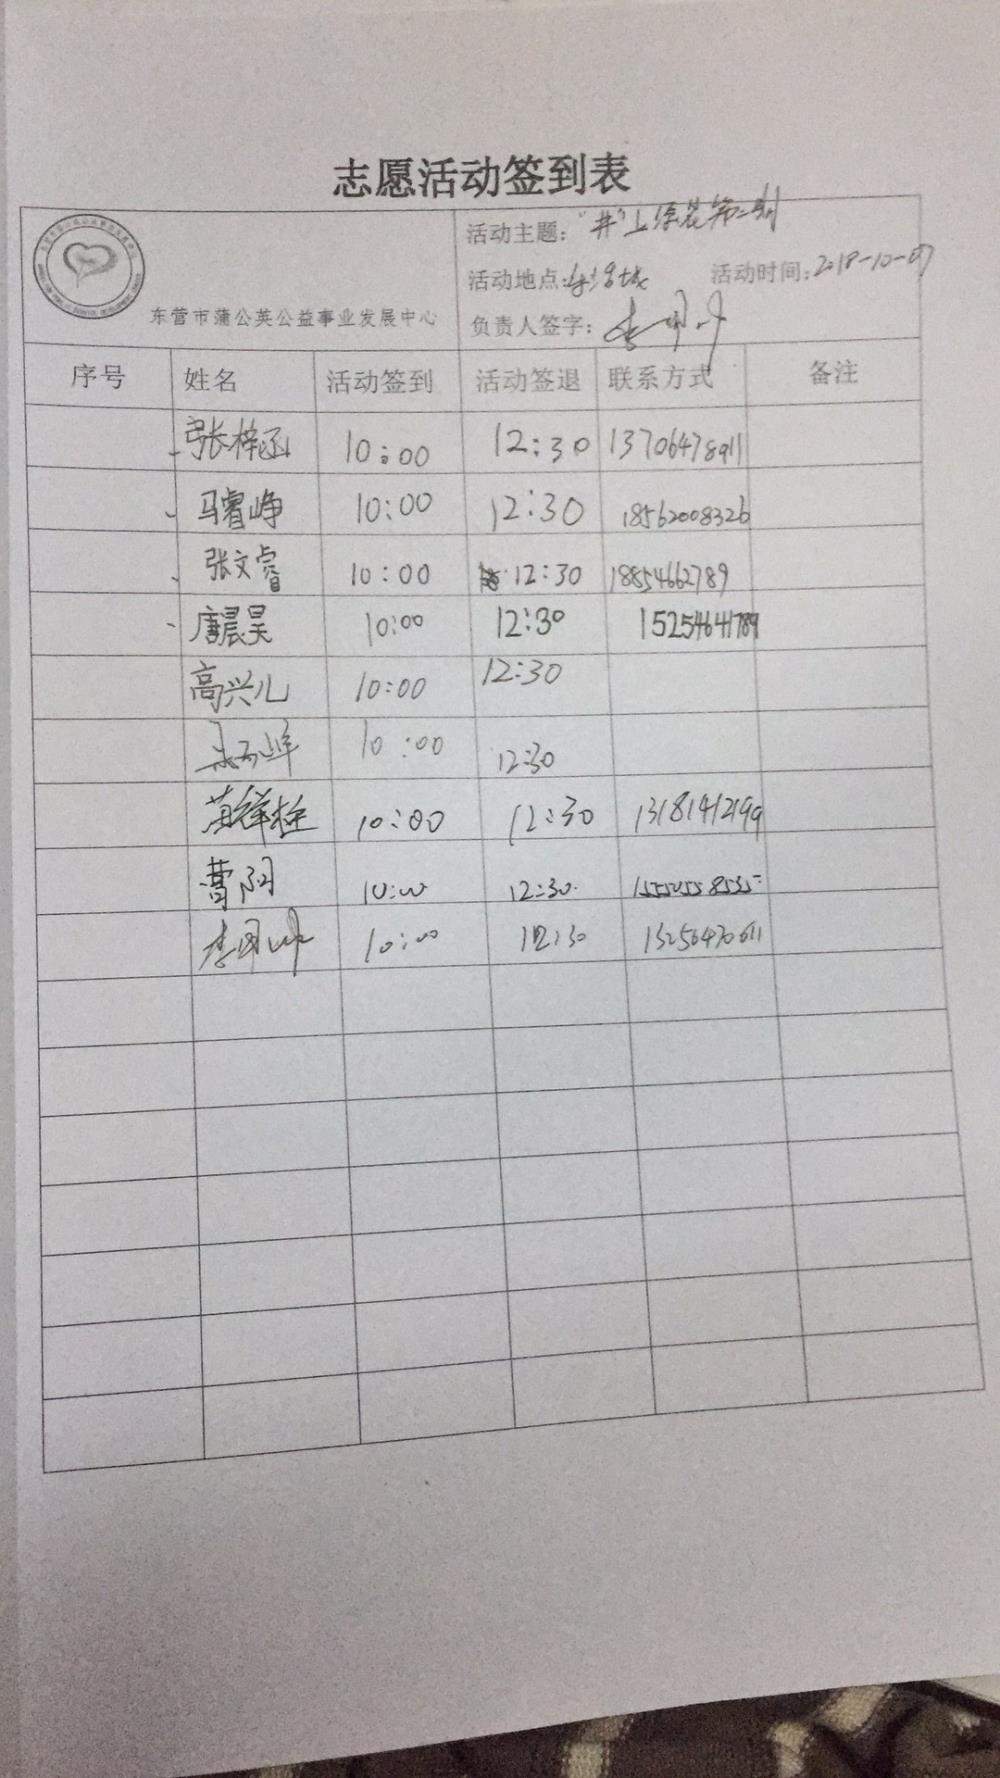 志愿活动签到表
活动主题："井"上添花第二期
活动地点： 活动时间：2018-10-07
东营市蒲公英公益事业发展中心 负责人签字：
序号 姓名 活动签到 活动签退 联系方式 备注
张梓函 10:00 12:30 13706478911
马睿峥 10:00 12:30 18562008326
张文睿 10:00 12:30 18854662789
唐晨昊 10:00 12:30 15254641789
高兴儿 10:00 12:30
10:00 12:30
黄祥栓 10:00 12:30 13181412199
曹阳 10:00 12:30
10:00 12:30 13256470611